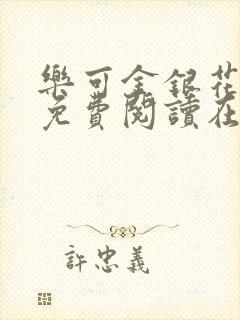 樂可金銀花
免費閱讀在
許忠義